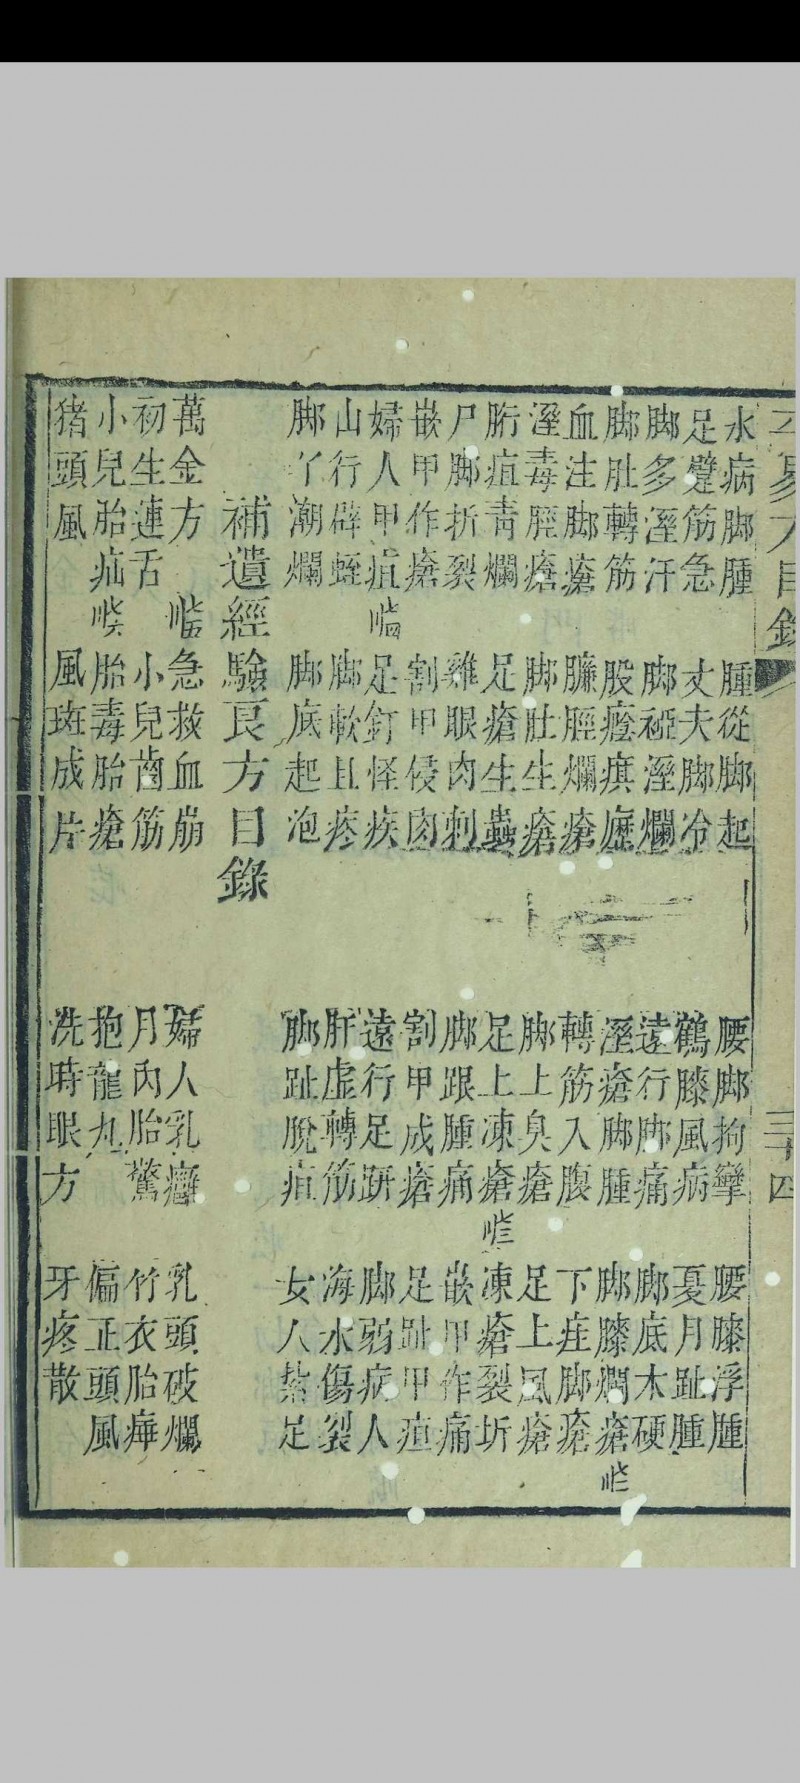 目錄
三十四
水病脚腫　腫從脚起　腰脚拘攣　腰膝浮腫
足躄筋急　丈夫脚冷　鶴膝風病　憂月趾腫
脚多溼汗　脚𥘵溼爛　遠行脚痛　脚底木硬
脚肚轉筋　股癋瘼㾐　溼瘡脚腫　脚膝爛瘡
血注脚瘡　臁脛爛瘡　轉筋入腹　下疰脚瘡
溼毒脛瘡　脚肚生瘡　脚上臭瘡　足上風瘡
胻疽靑爛　足瘡生蟲　足上凍瘡　凍瘡裂坼
尸脚折裂　雞眼肉刺　脚跟腫痛　嵌甲作痛
嵌甲作瘡　割甲侵肉　割甲成瘡　足趾甲疽
婦人甲疽　足釘怪疾　遠行足趼　脚弱病人
山行辟蛭　脚軟且疼　肝虛轉筋　海水傷裂
脚丫潮爛　脚底起泡　脚趾脫疽　女人紮足
補遺經驗良方目錄
萬金方　急救血崩　婦人乳癰　乳頭破爛
初生連舌　小兒齒筋　月內胎驚　竹衣胎瘅
小兒胎疝　胎毒胎瘡　抱龍丸　偏正頭風
猪頭風　風斑成片　洗時眼方　牙疼散